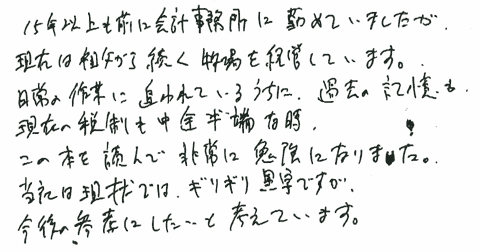 15年以上も前に会計事務所に勤めていましたが、
現在は祖父から続く牧場を経営しています。
日常の作業に追われているうちに、過去の記憶も
現在の税制も中途半端な時、
この本を読んで非常に勉強になりました。
当社は現状では、ギリギリ黒字ですが、
今後の参考にしたいと考えています。